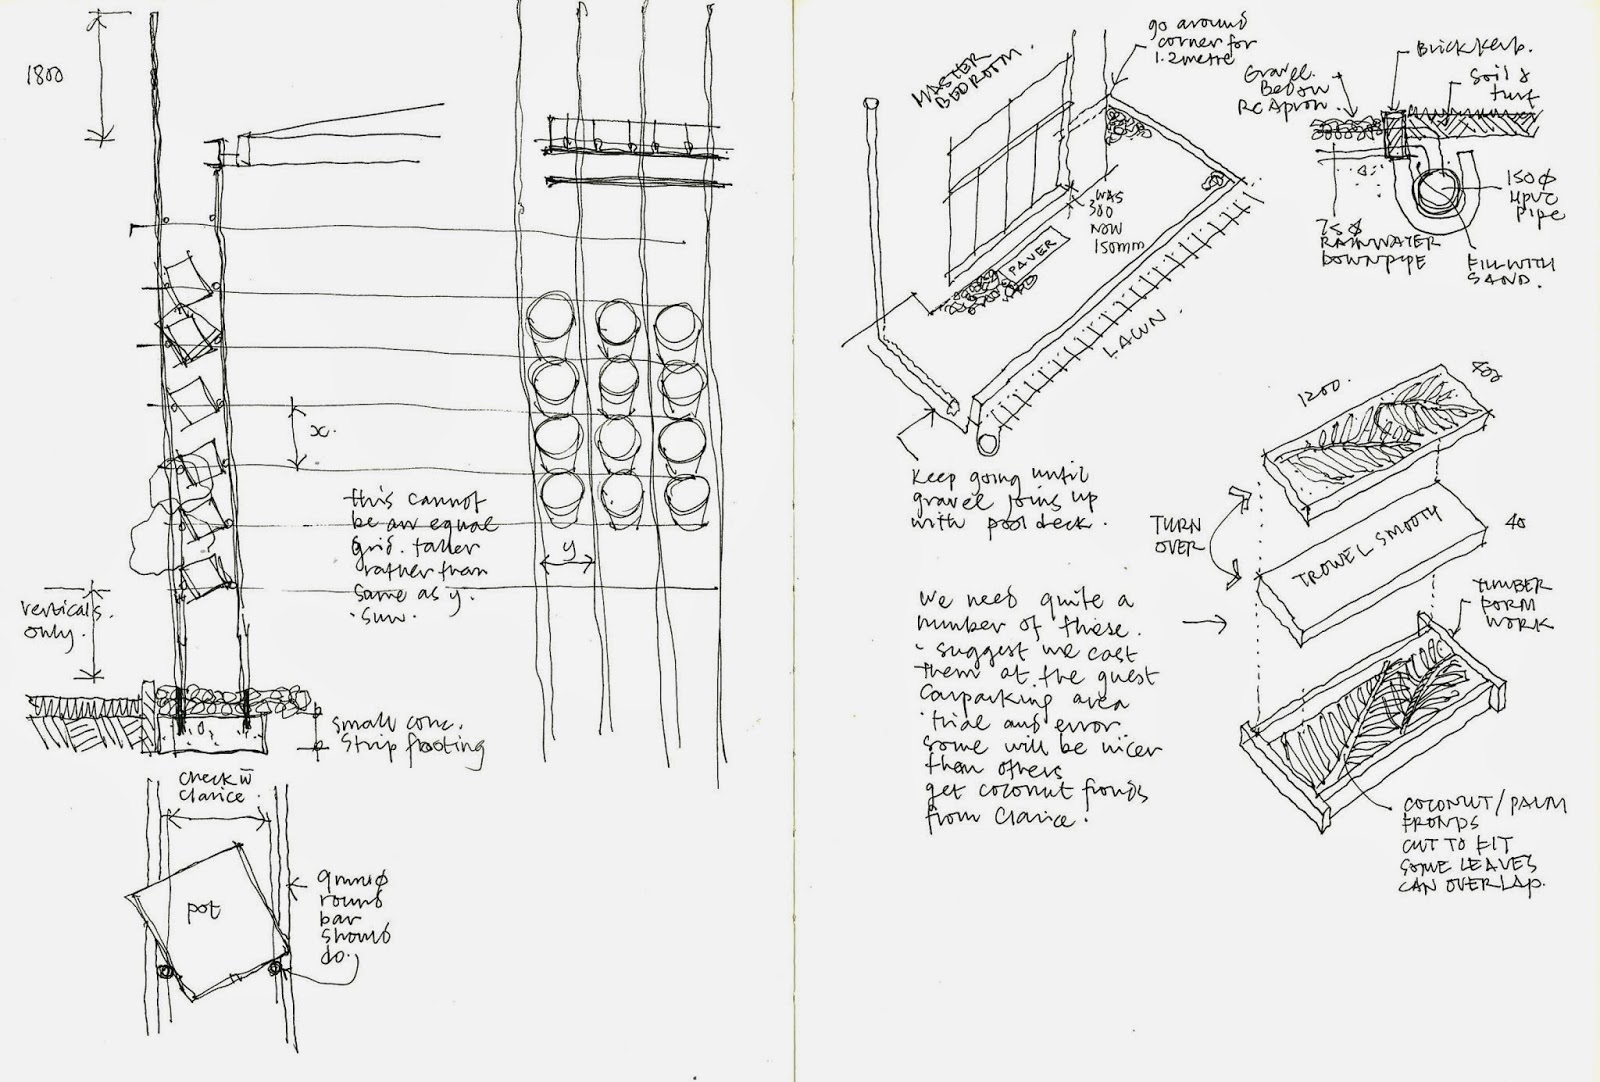 1800
x.
this cannot
be an equal
grid. taller
rather than
same as y.
y
verticals
only.
small conc.
strip footing
check w
Clarice.
pot
9mm ø
round
bar
should
do.
MASTER
BEDROOM.
go around
corner for
1.2 metre
WAS
300
NOW
150mm
PAVER
LAWN.
Keep going until
gravel joins up
with pool deck.
Gravel.
Below
RC Apron.
Brick kerb.
Soil &
turf
150 ø
UPVC
pipe
75 ø
RAINWATER
DOWNPIPE
FILL WITH
SAND.
1200.
400
40
TURN
OVER
TROWEL SMOOTH
TIMBER
FORM
WORK
We need quite a
number of these.
suggest we cast
them at the guest
carparking area
trial and error
some will be nicer
then others
get coconut fronds
from Clarice!
COCONUT/PALM
FRONDS
CUT TO FIT
SOME LEAVES
CAN OVERLAP.